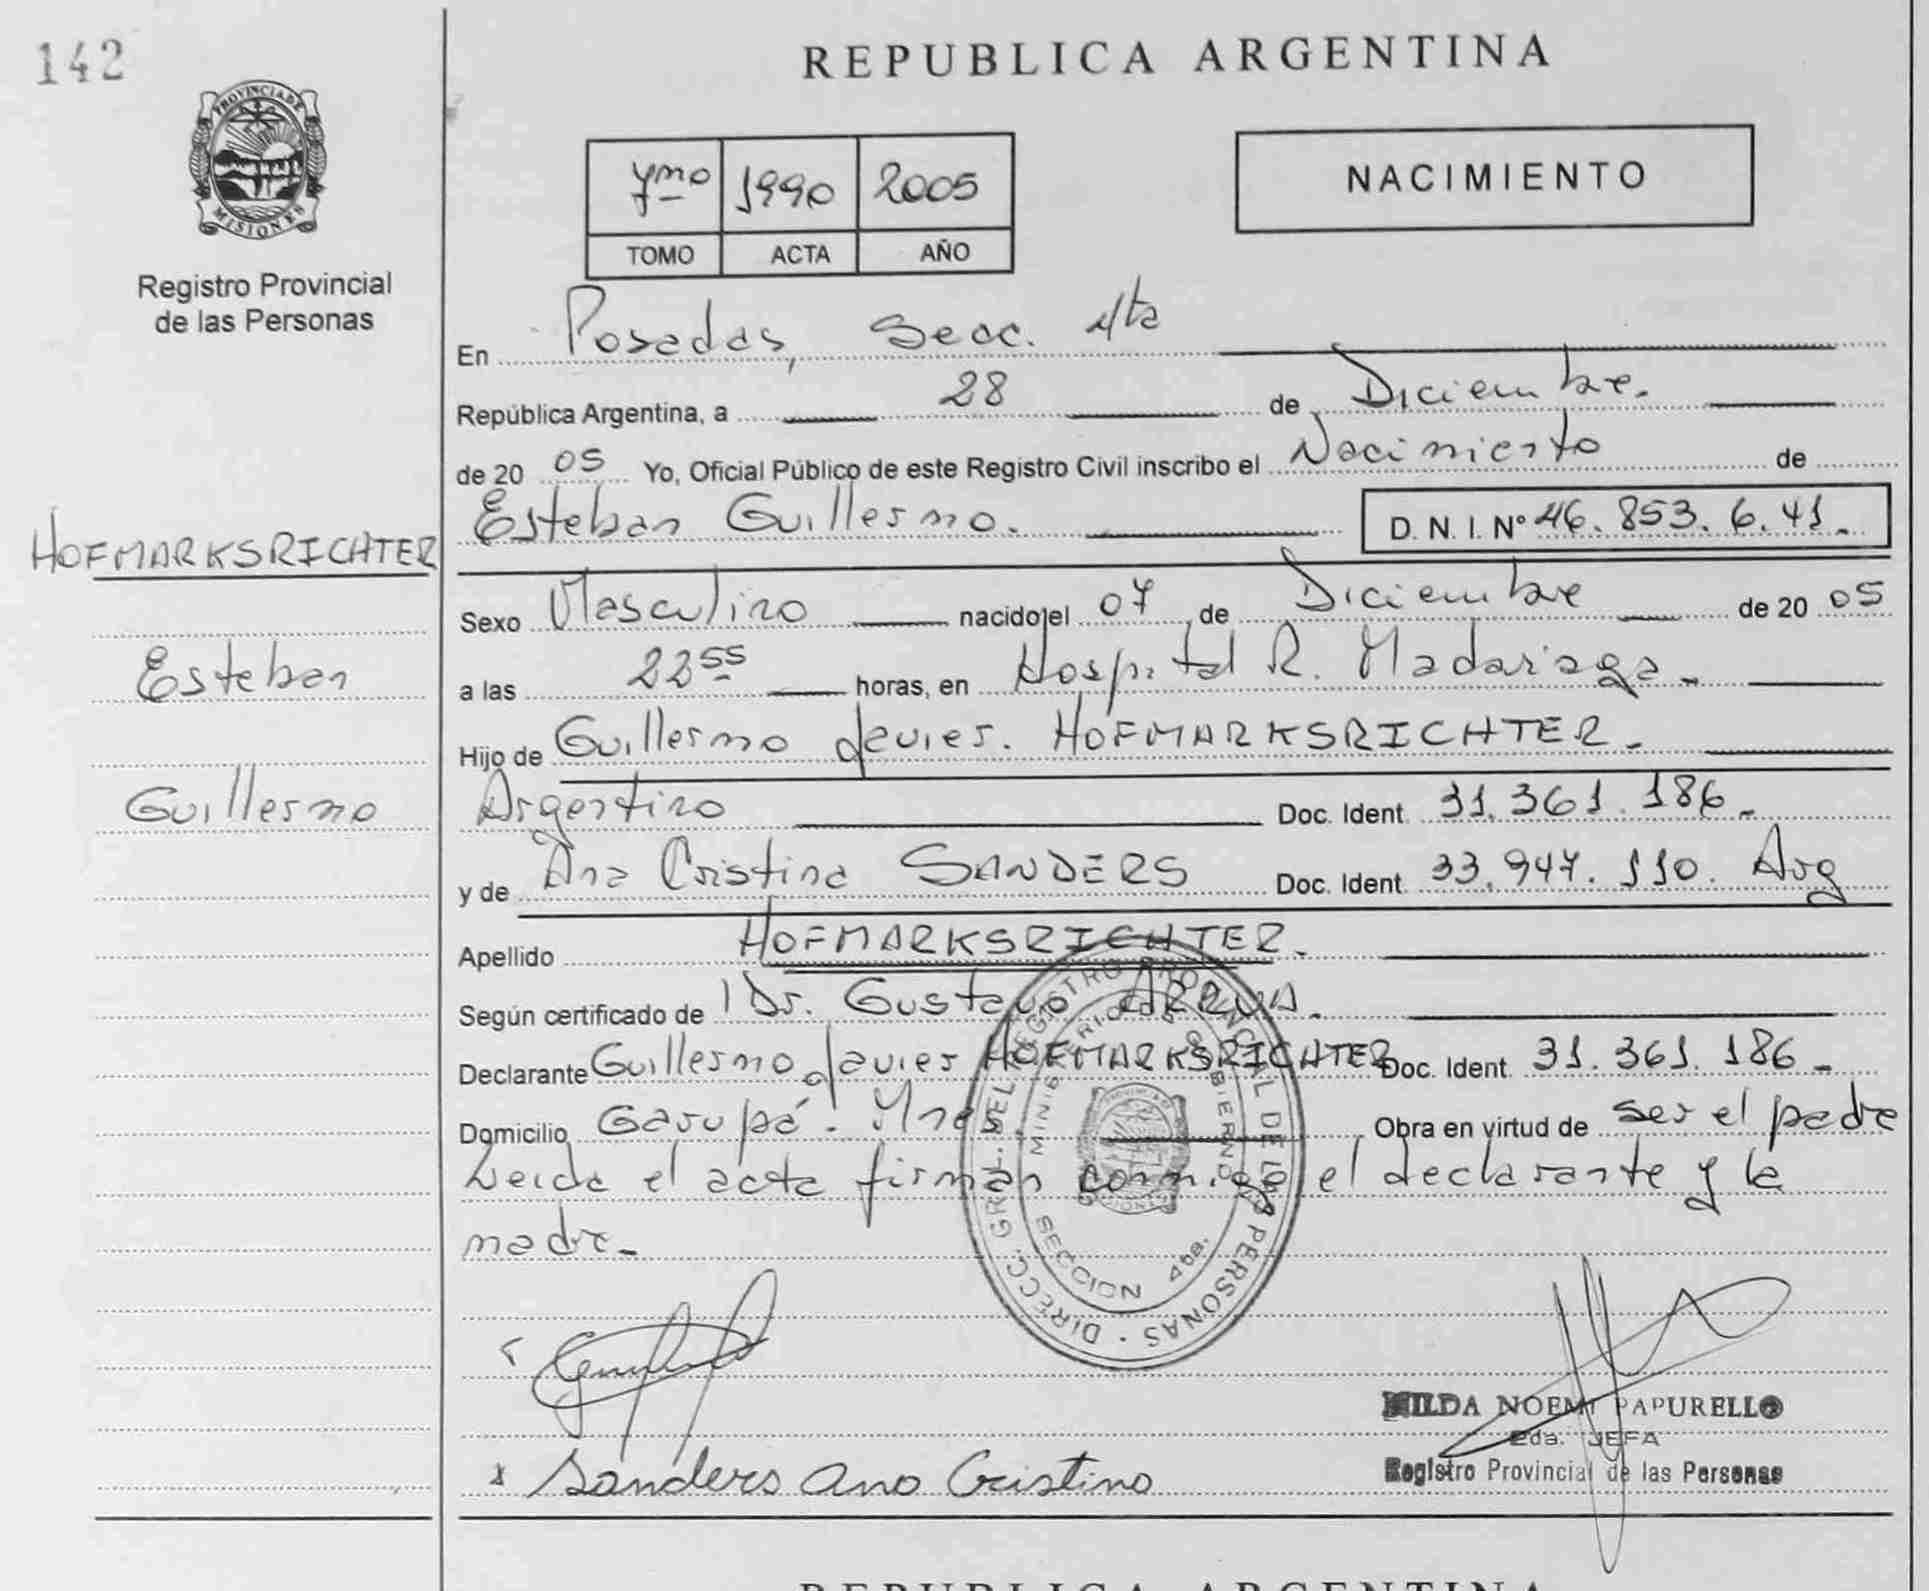 142
REPUBLICA ARGENTINA
PROVINCIA DE
MISIONES
Registro Provincial
de las Personas
7mo 1990 2005
TOMO ACTA AÑO
NACIMIENTO
En Posadas, Secc. 4ta
República Argentina, a 28 de Diciembre.
de 20 05 Yo, Oficial Público de este Registro Civil inscribo el Nacimiento de
Esteban Guillermo. D. N. I. Nº 46.853.6.41.-
HOFMARKSRICHTER
Esteban
Guillermo
Sexo Masculino nacido el 07 de Diciembre de 20 05
a las 22 55 horas, en Hospital R. Madariaga.-
Hijo de Guillermo Javier. HOFMARKSRICHTER.-
Argentino Doc. Ident. 31.361.186.-
y de Ana Cristina SANDERS Doc. Ident. 33.947.110. Arg
Apellido HOFMARKSRICHTER.
Según certificado de Dr. Gustavo
Declarante Guillermo Javier HOFMARKSRICHTER Doc. Ident. 31.361.186.-
Domicilio Garupá. Mnes. Obra en virtud de ser el padre
Leida el acta firman conmigo el declarante y la
madre.-
DIRECC. GRAL. DEL REGISTRO PROVINCIAL DE LAS PERSONAS
MINISTERIO DE GOBIERNO
SECCION 4ta.
Sanders Ana Cristina
HILDA NOEMI PAPURELLO
2da. JEFA
Registro Provincial de las Personas
REPUBLICA ARGENTINA